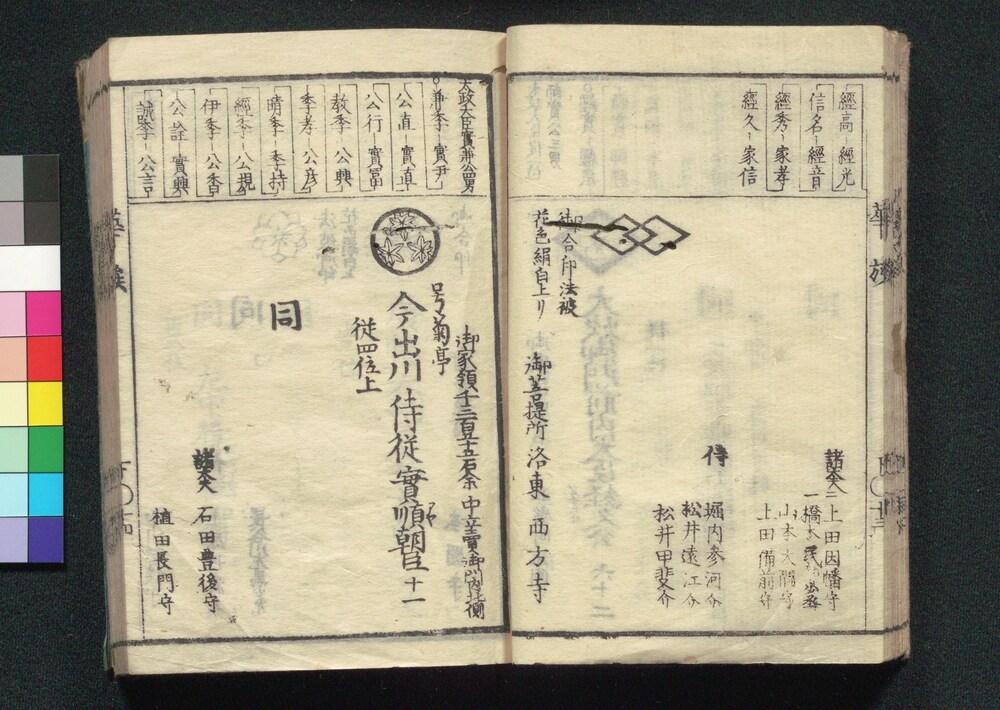 經高 經光
信名 經音
經秀 家孝
經久 家信
諸大夫
上田因幡守
一橋本民部丞
山本大膳守
上田備前守
侍
堀内参河介
松井遠江介
松井甲斐介
御合印法被
花色絹白上り
御菩提所 洛東 西方寺
太政大臣實兼公四男
兼季 實尹
公直 實直
公行 實富
教季 公興
季孝 公彦
晴季 季持
經季 公規
伊季 公香
公詮 實興
誠季 公言
御家領千三百五十五石余 中立賣御門内北側
号菊亭
今出川侍従實順朝臣 十一
従四位上
同
諸大夫
石田豊後守
植田長門守
華族
下〇十三
華族
下〇十四